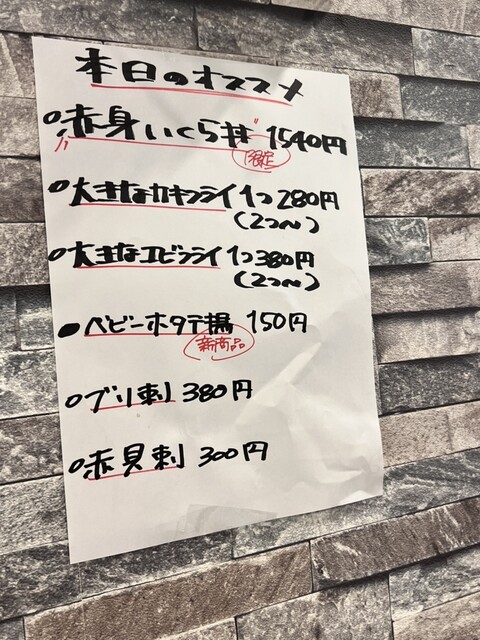 本日のオススメ
赤身いくら丼 1540円
限定
大きなカキフライ 1つ 280円
(2つ〜)
大きなエビフライ 1つ 380円
(2つ〜)
ベビーホタテ揚 150円
新商品
ブリ刺 380円
赤貝刺 300円